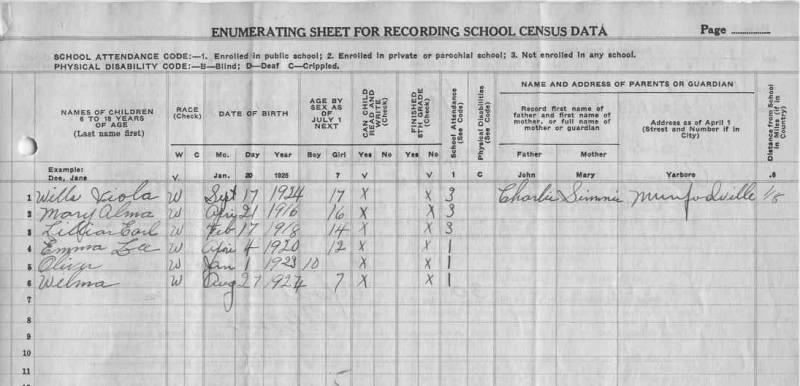 ENUMERATING SHEET FOR RECORDING SCHOOL CENSUS DATA Page
SCHOOL ATTENDANCE CODE:—1. Enrolled in public school; 2. Enrolled in private or parochial school; 3. Not enrolled in any school.
PHYSICAL DISABILITY CODE:—B—Blind; D—Deaf C—Crippled.
NAMES OF CHILDREN 6 TO 18 YEARS OF AGE (Last name first)
RACE (Check)
DATE OF BIRTH
AGE BY SEX AS OF JULY 1 NEXT
CAN CHILD READ AND WRITE (Check)
FINISHED 8TH GRADE (Check)
School Attendance (See Code)
Physical Disabilities (See Code)
NAME AND ADDRESS OF PARENTS OR GUARDIAN
Record first name of father and first name of mother, or full name of mother or guardian
Address as of April 1 (Street and Number if in City)
Distance from School in Miles (if in Country)
W C Mo. Day Year Boy Girl Yes No Yes No 1 C Father Mother
Example:
Doe, Jane V. Jan. 20 1925 7 V V John Mary Yarboro .5
1 Wille Viola W Sept 17 1924 17 X X 3 Charlie Simmie Munfordville 1/8
2 Mary Alma W Apr 21 1916 16 X X 3
3 Lillian Earl W Feb 17 1918 14 X X 3
4 Emma Lee W 4 1920 12 X X 1
5 Oliver W Jan 1 1923 10 X 1
6 Welma W Aug 27 1924 7 X X 1
7
8
9
10
11